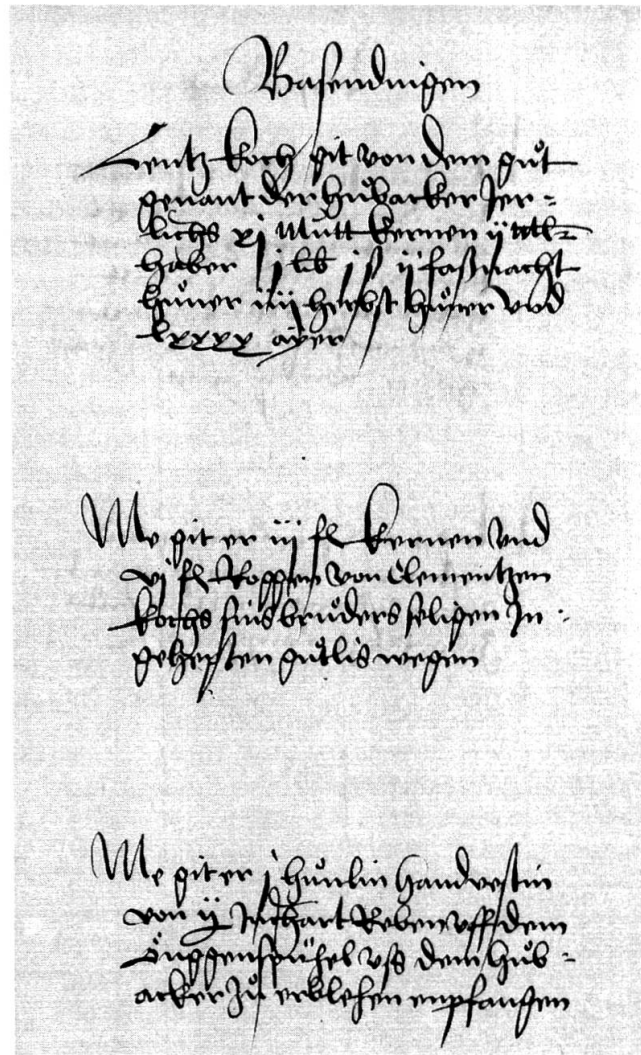 Basendingen
Lentz Koch git von dem gůt
genant der hůbacker Jer-
lichs xj Mutt kernen ij mlr
haber j lib j ß ij faßnacht
hůner iiij herbst hůner vnd
lxxxx ayer
Me git er iij fl kernen vnd
vj fl Roggen von Clementzen
kochs sins brůders seligen In-
gehepten gůtlis wegen
Me git er j hůnlin handvestin
von ij Juchart Reben uff dem
uss dem hůb-
acker zů erblehen enpfangen